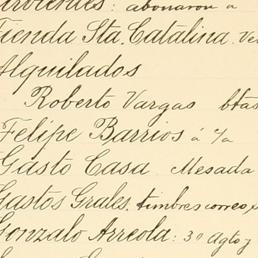 abonaron á
Tienda Sta. Catalina. Ve
Alquilados
Roberto Vargas btas
Felipe Barrios á %a
Gasto Casa. Mesada
Gastos Grales. timbres correo,
Gonzalo Arreola: 3º Agto y